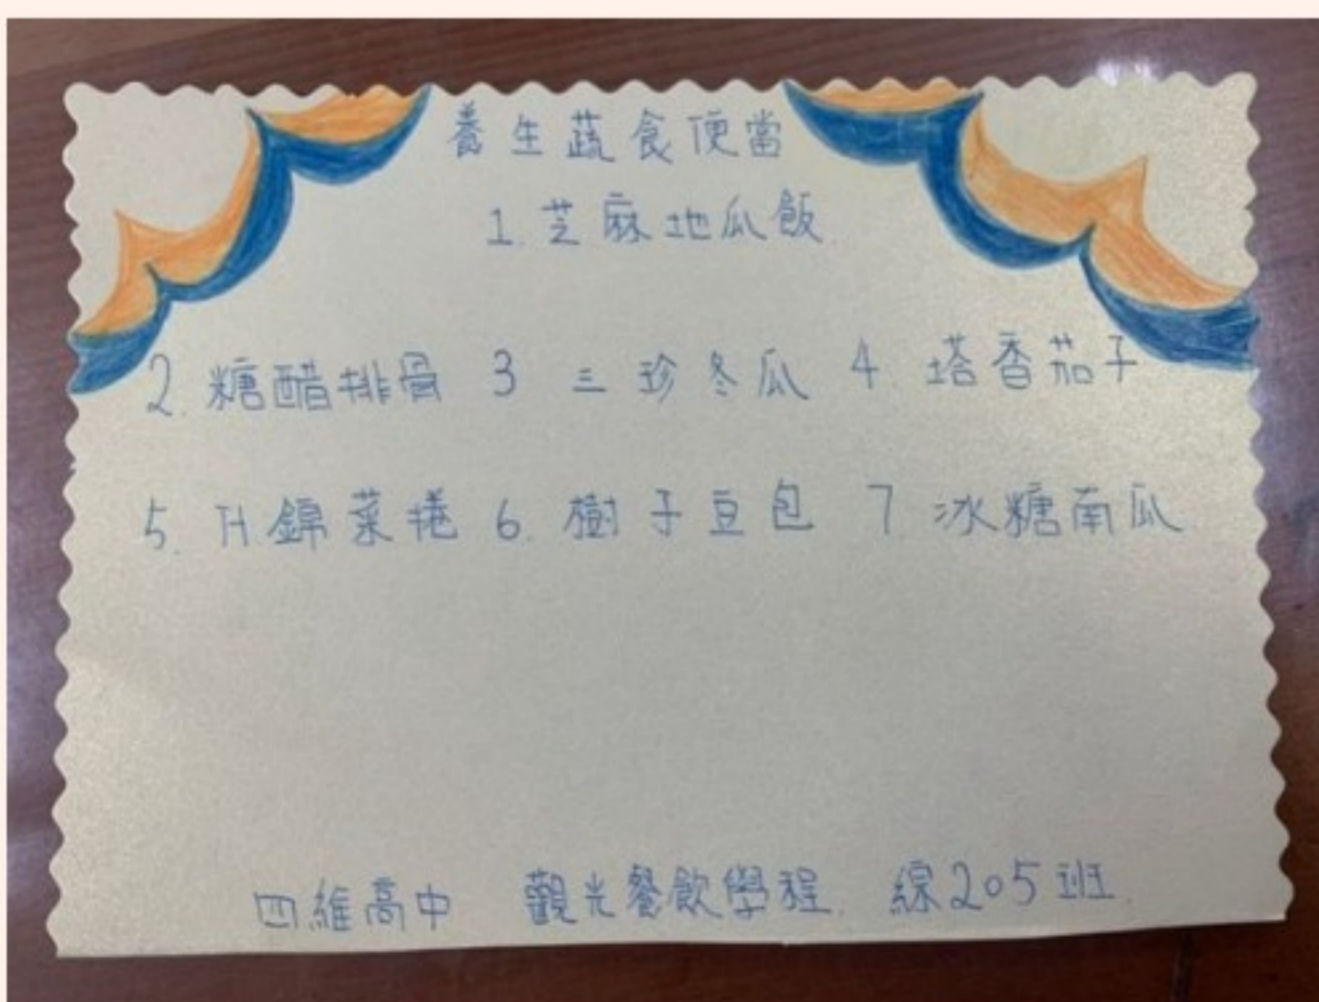 養生蔬食便當
1. 芝麻地瓜飯
2. 糖醋排骨 3 三珍冬瓜 4. 塔香茄子
5. 什錦菜捲 6. 樹子豆包 7. 冰糖南瓜
四維高中 觀光餐飲學程 綜205班